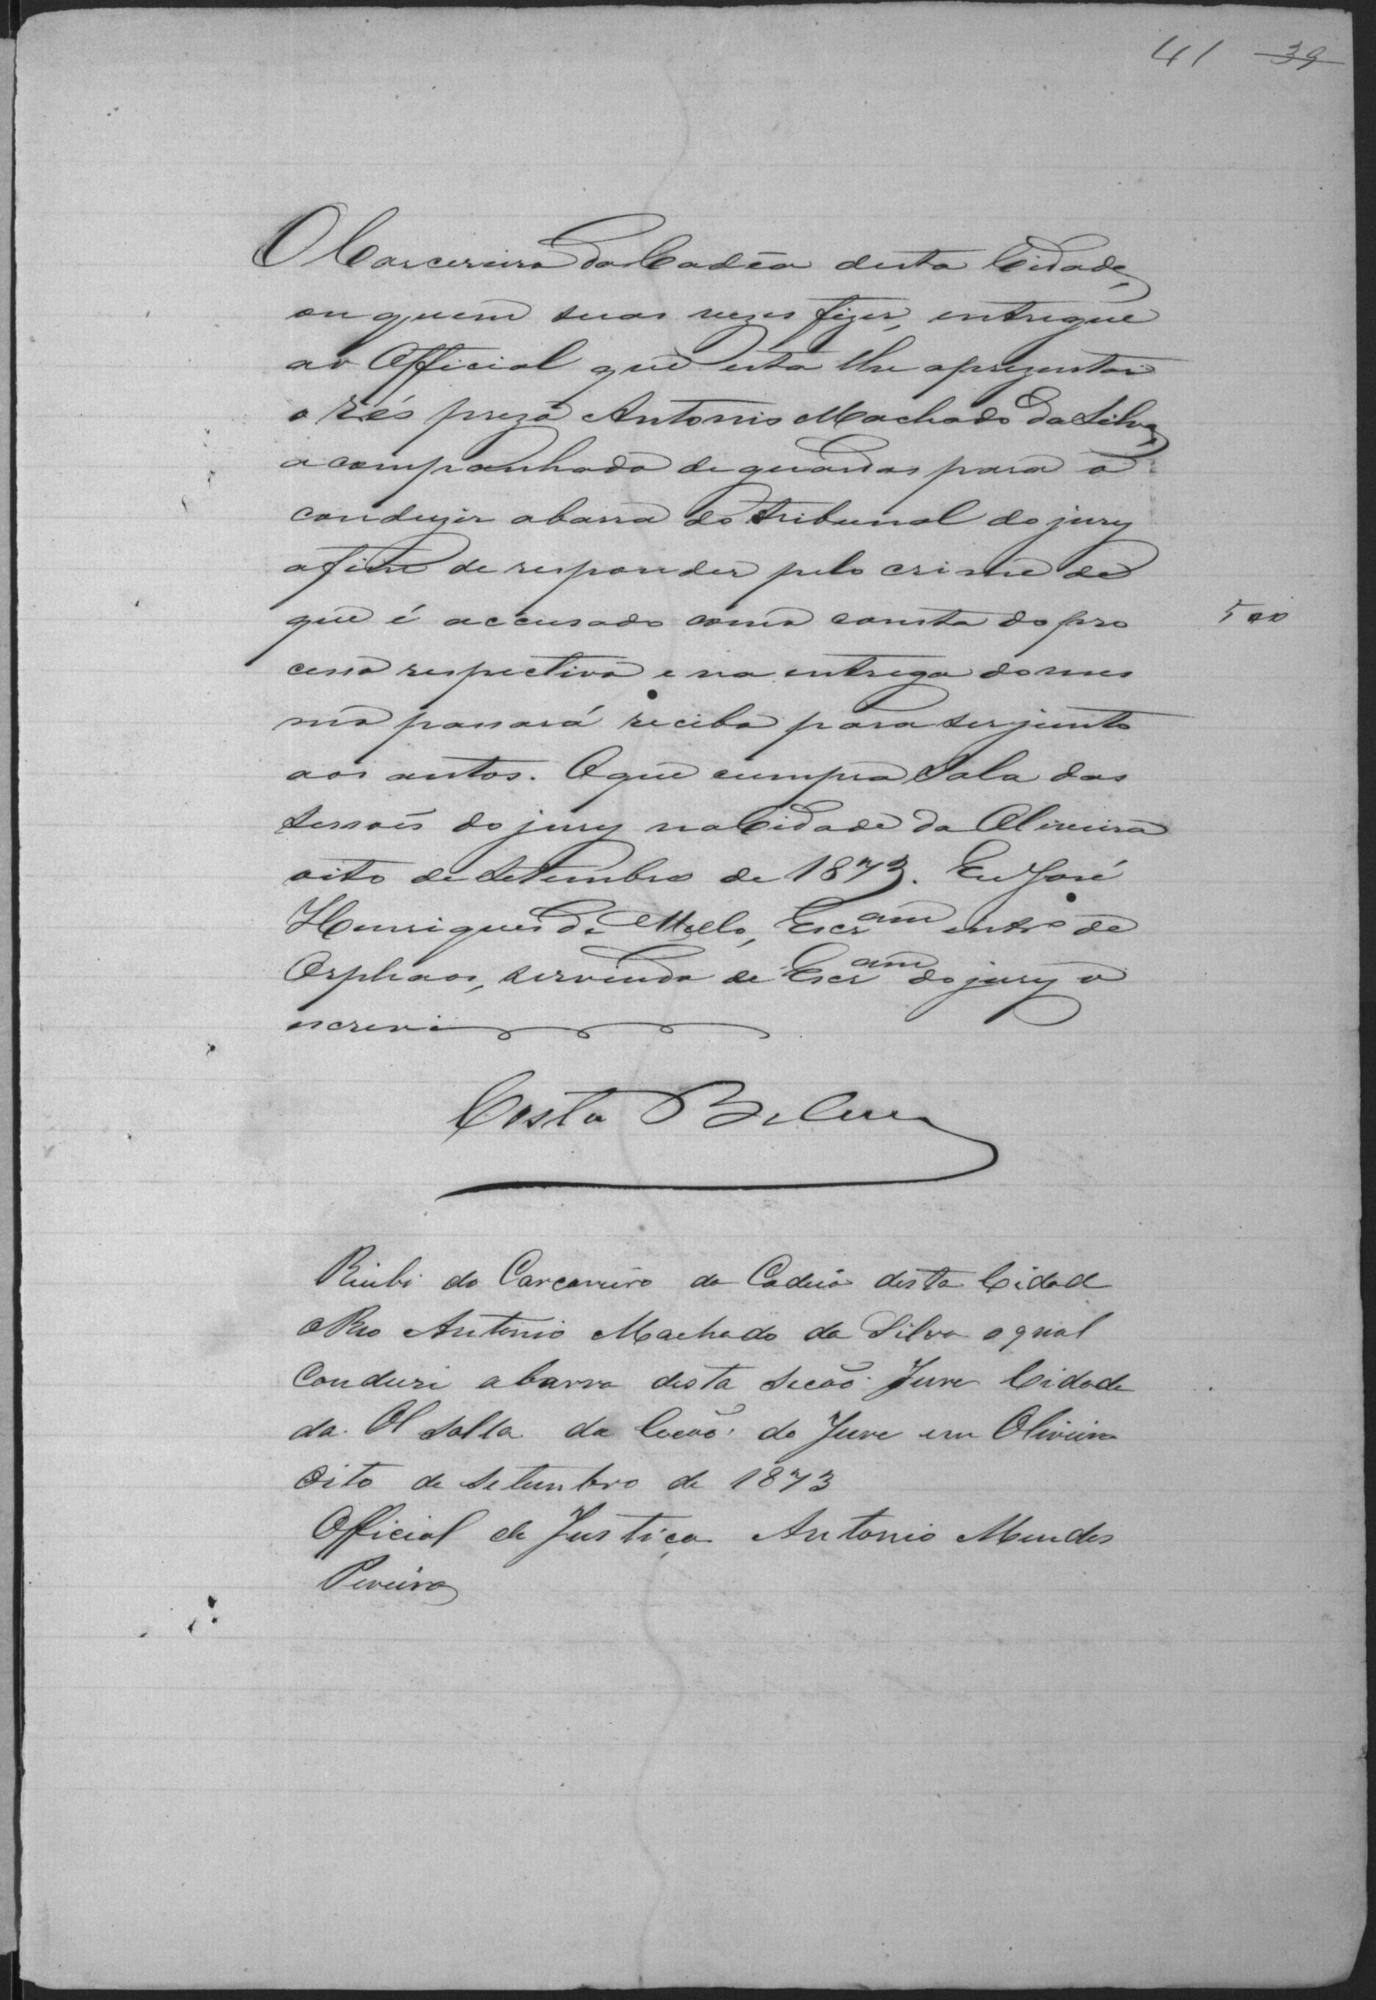 41 39
O Carcereiro da Cadêa desta Cidade,
ou quem suas vezes fizer, entregue
ao Official que esta lhe aprezentar
o réo prezo Antonio Machado da Silva,
acompanhado de guardas para o
conduzir a barra do tribunal do jury
afim de responder pelo crime de
que é accusado como consta do pro
cesso respectivo e na entrega do mes
mo passará recibo para ser junto
aos autos. O que cumpra Sala das
sessoẽs do jury na Cidade da Oliveira
oito de Setembro de 1873. Eu José
Henriques de Mello, Escram de
Orphaos, servindo de Escram do jury o
escrevi
500
Costa
Ricibi do Carcereiro da Cadeia desta Cidad
o Reo Antonio Machado da Silva o qual
Conduzi a barra desta Secão Jure Cidade
da. Ol Salla da do Jure em Oliveira
Oito de Setembro de 1873
Official de Justiça Antonio Mendes
Pereira